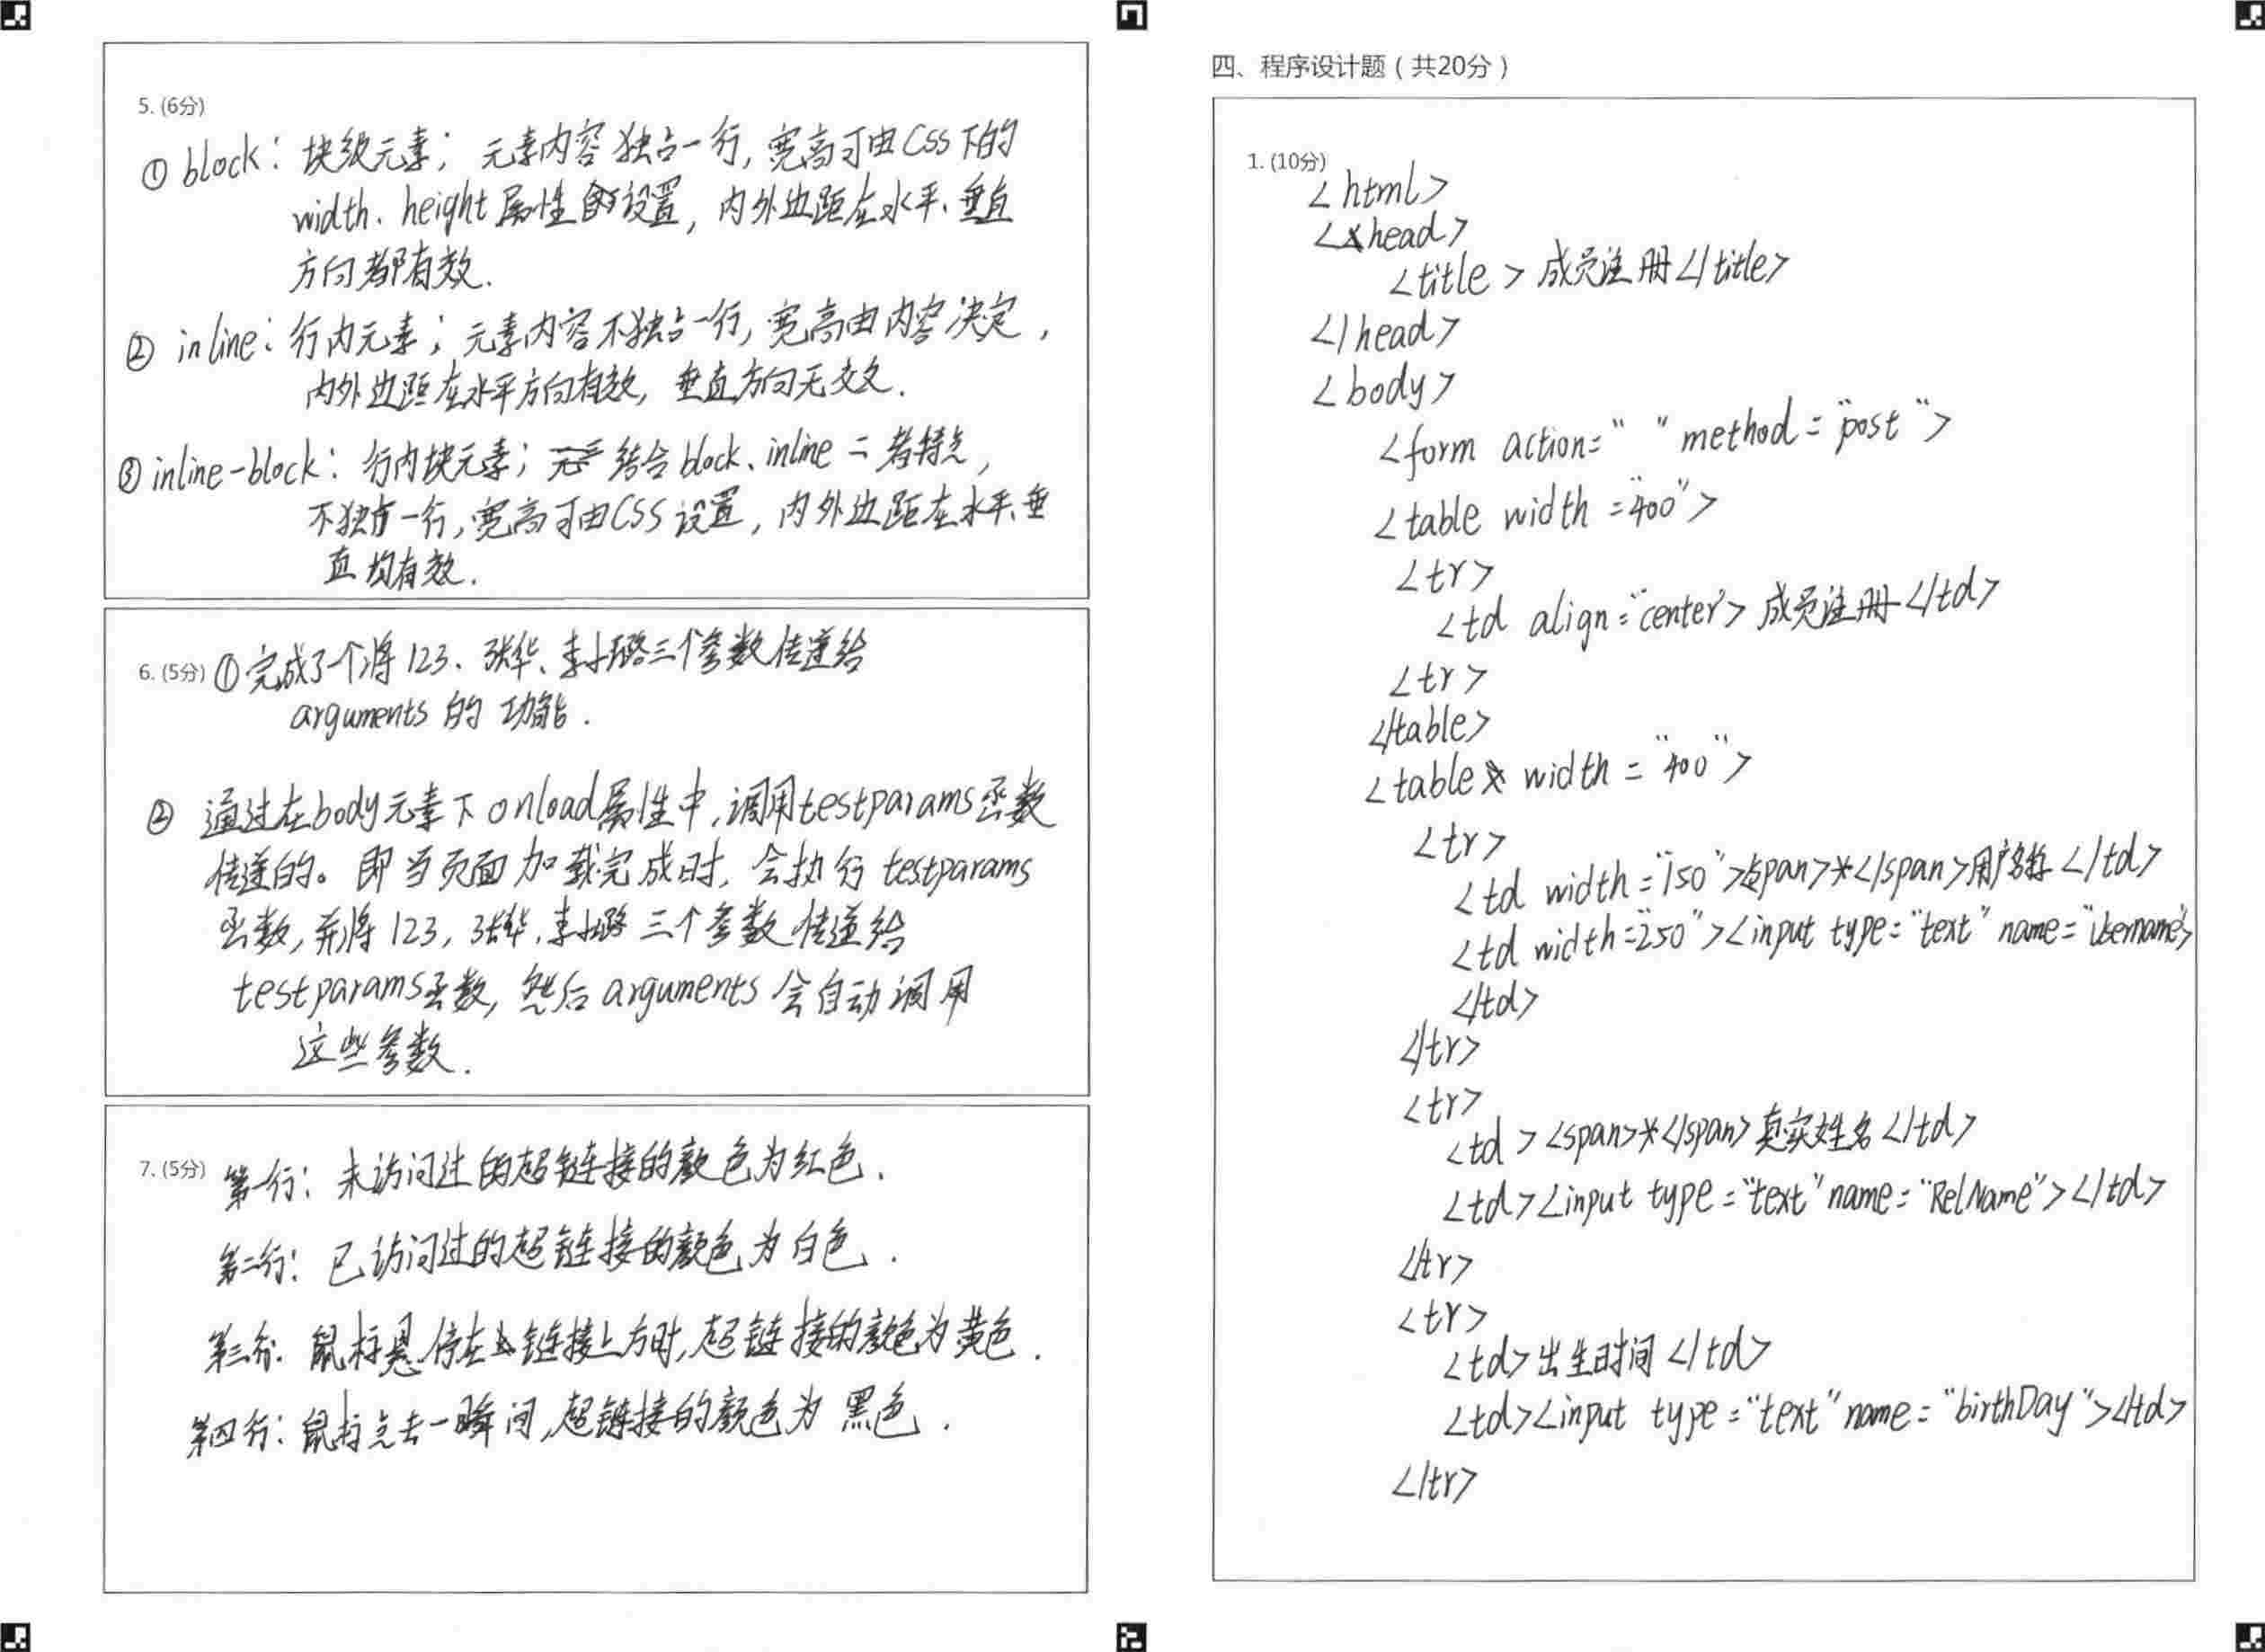 5. (6分)
① block：块级元素；元素内容独占一行，宽高可由Css下的
width、height属性设置，内外边距在水平、垂直
方向都有效.
② inline：行内元素；元素内容不独占一行，宽高由内容决定，
内外边距在水平方向有效，垂直方向无效.
③ inline-block：行内块元素；结合block、inline二者特点，
不独占一行，宽高可由CSS设置，内外边距在水平、垂
直均有效.
6. (5分) ①完成了一个将123、张华、李小璐三个参数传递给
arguments的功能.
② 通过在body元素下onload属性中,调用testparams函数
传递的。即当页面加载完成时，会执行testparams
函数,并将123,张华,李小璐三个参数传递给
testparams函数，然后arguments会自动调用
这些参数.
7. (5分) 第一行：未访问过的超链接的颜色为红色.
第二行：已访问过的超链接的颜色为白色.
第三行：鼠标悬停在链接上方时,超链接的颜色为黄色.
第四行：鼠标点击一瞬间,超链接的颜色为黑色.
四、程序设计题（共20分）
1. (10分)
<html>
<head>
<title>成员注册</title>
</head>
<body>
<form action=" " method="post">
<table width="400">
<tr>
<td align="center">成员注册</td>
<tr>
</table>
<table width="400">
<tr>
<td width="150"><span>*</span>用户名称</td>
<td width="250"><input type="text" name="Username">
</td>
</tr>
<tr>
<td><span>*</span>真实姓名</td>
<td><input type="text" name="RelName"></td>
</tr>
<tr>
<td>出生时间</td>
<td><input type="text" name="birthDay"></td>
</tr>